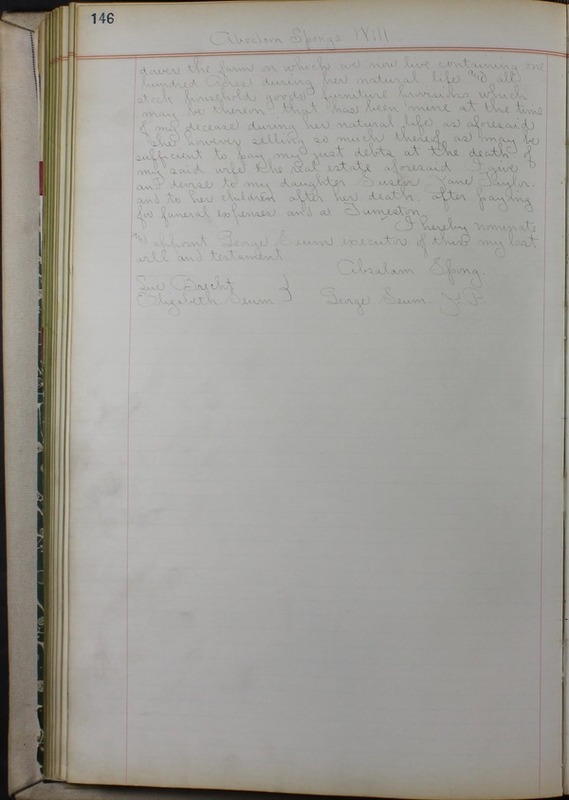 146
Absolom Spongs Will
dower the farm on which we now live containing one
hundred Acres during her natural life and all
stock household goods furniture provisions which
may be therein that has been mine at the time
of my decease during her natural life as aforesaid
She however selling so much thereof as may be
sufficient to pay my just debts at the death of
my said wife the real estate aforesaid I give
and devise to my daughter Susan Jane Taylor.
and to her children after her death. after paying
for funeral expenses and a Tumeston
I hereby nominate
and appoint George Seum executor of this my last
will and testament
Absalam Spong.
Sue Brecht }
Elizabeth Seum } George Seum J. P.